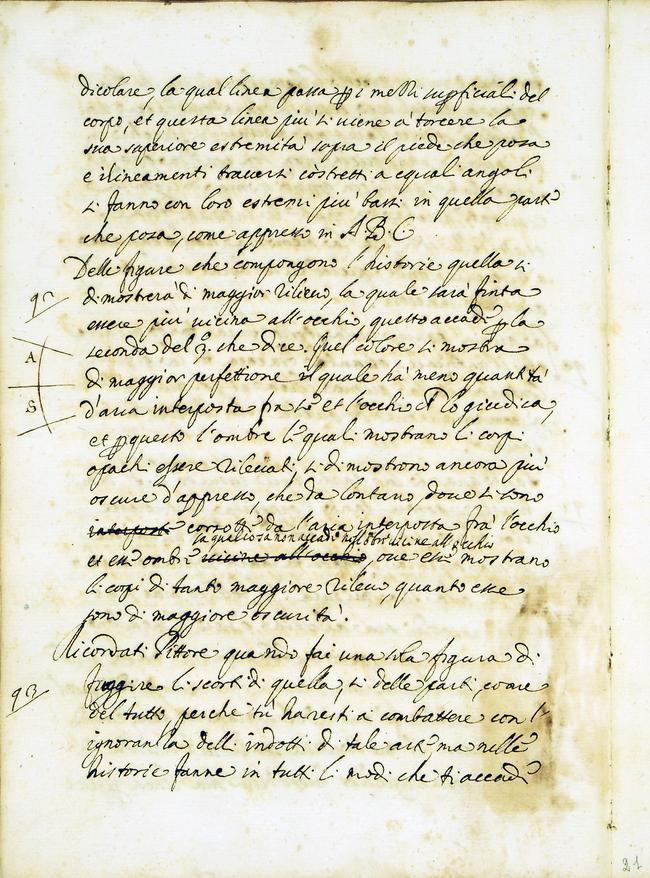 dicolare, la qual linea passa p i mezzi supficiali del
corpo, et questa linea più si uiene a torcere la
sua superiore estremità sopra il piede che posa
e i lineamenti trauersi costretti a equali angoli
si fanno con loro estremi più bassi in quella parte
che posa, come appresso in A.B.C.
Delle figure che compongono l'historie quella si
92 dimostrerà di maggior rilieuo, la quale sarà finta
essere più uicina all'occhio, questo accade p la
seconda del 3.° che dice. Quel colore si mostra
A di maggior perfettione il quale hà meno quantità
S d'aria interposta fra se et l'occhio che lo giudica,
et p questo l'ombre le quali mostrano li corpi
opachi essere rileuati, si dimostrono ancora più
oscure d'appresso, che da lontano, doue si sono
interposte corrotte da l'aria interposta frà l'occhio
la qual cosa non accade nell'ombre uicine all'occhio
et esse ombre uicine all'occhio, oue esse mostrano
li corpi di tanto maggiore rilieuo, quanto esse
sono di maggiore oscurità.
Ricordati Pittore quando fai una sola figura di
93 fuggire li scorti di quella, si delle parti, come
del tutto, perche tù haresti a combattere con l'
ignoranza delli indotti di tale arte, ma nelle
historie fanne in tutti li modi che ti accade
21